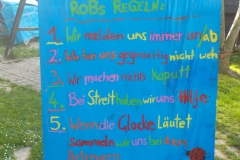 ROBS REGELN:
1. Wir melden uns immer an/ab
2. Wir tun uns gegenseitig nicht weh
3. Wir machen nichts kaputt
4. Bei Streit holen wir uns Hilfe
5. Wenn die Glocke läutet
sammeln wir uns bei